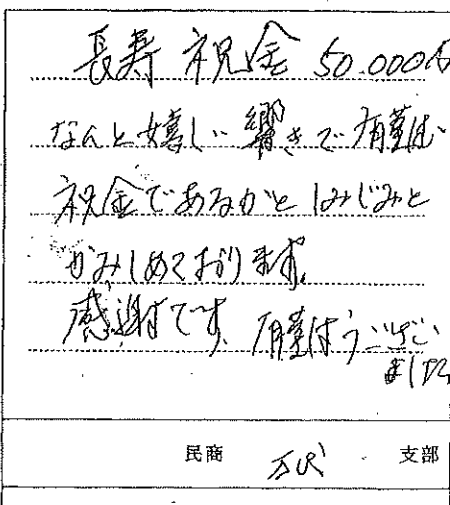 長寿 祝金 50.000円
なんと嬉しい響きで有難い
祝金であるかと しみじみと
かみしめております。
感謝です。有難うござい
ました
民商 支部